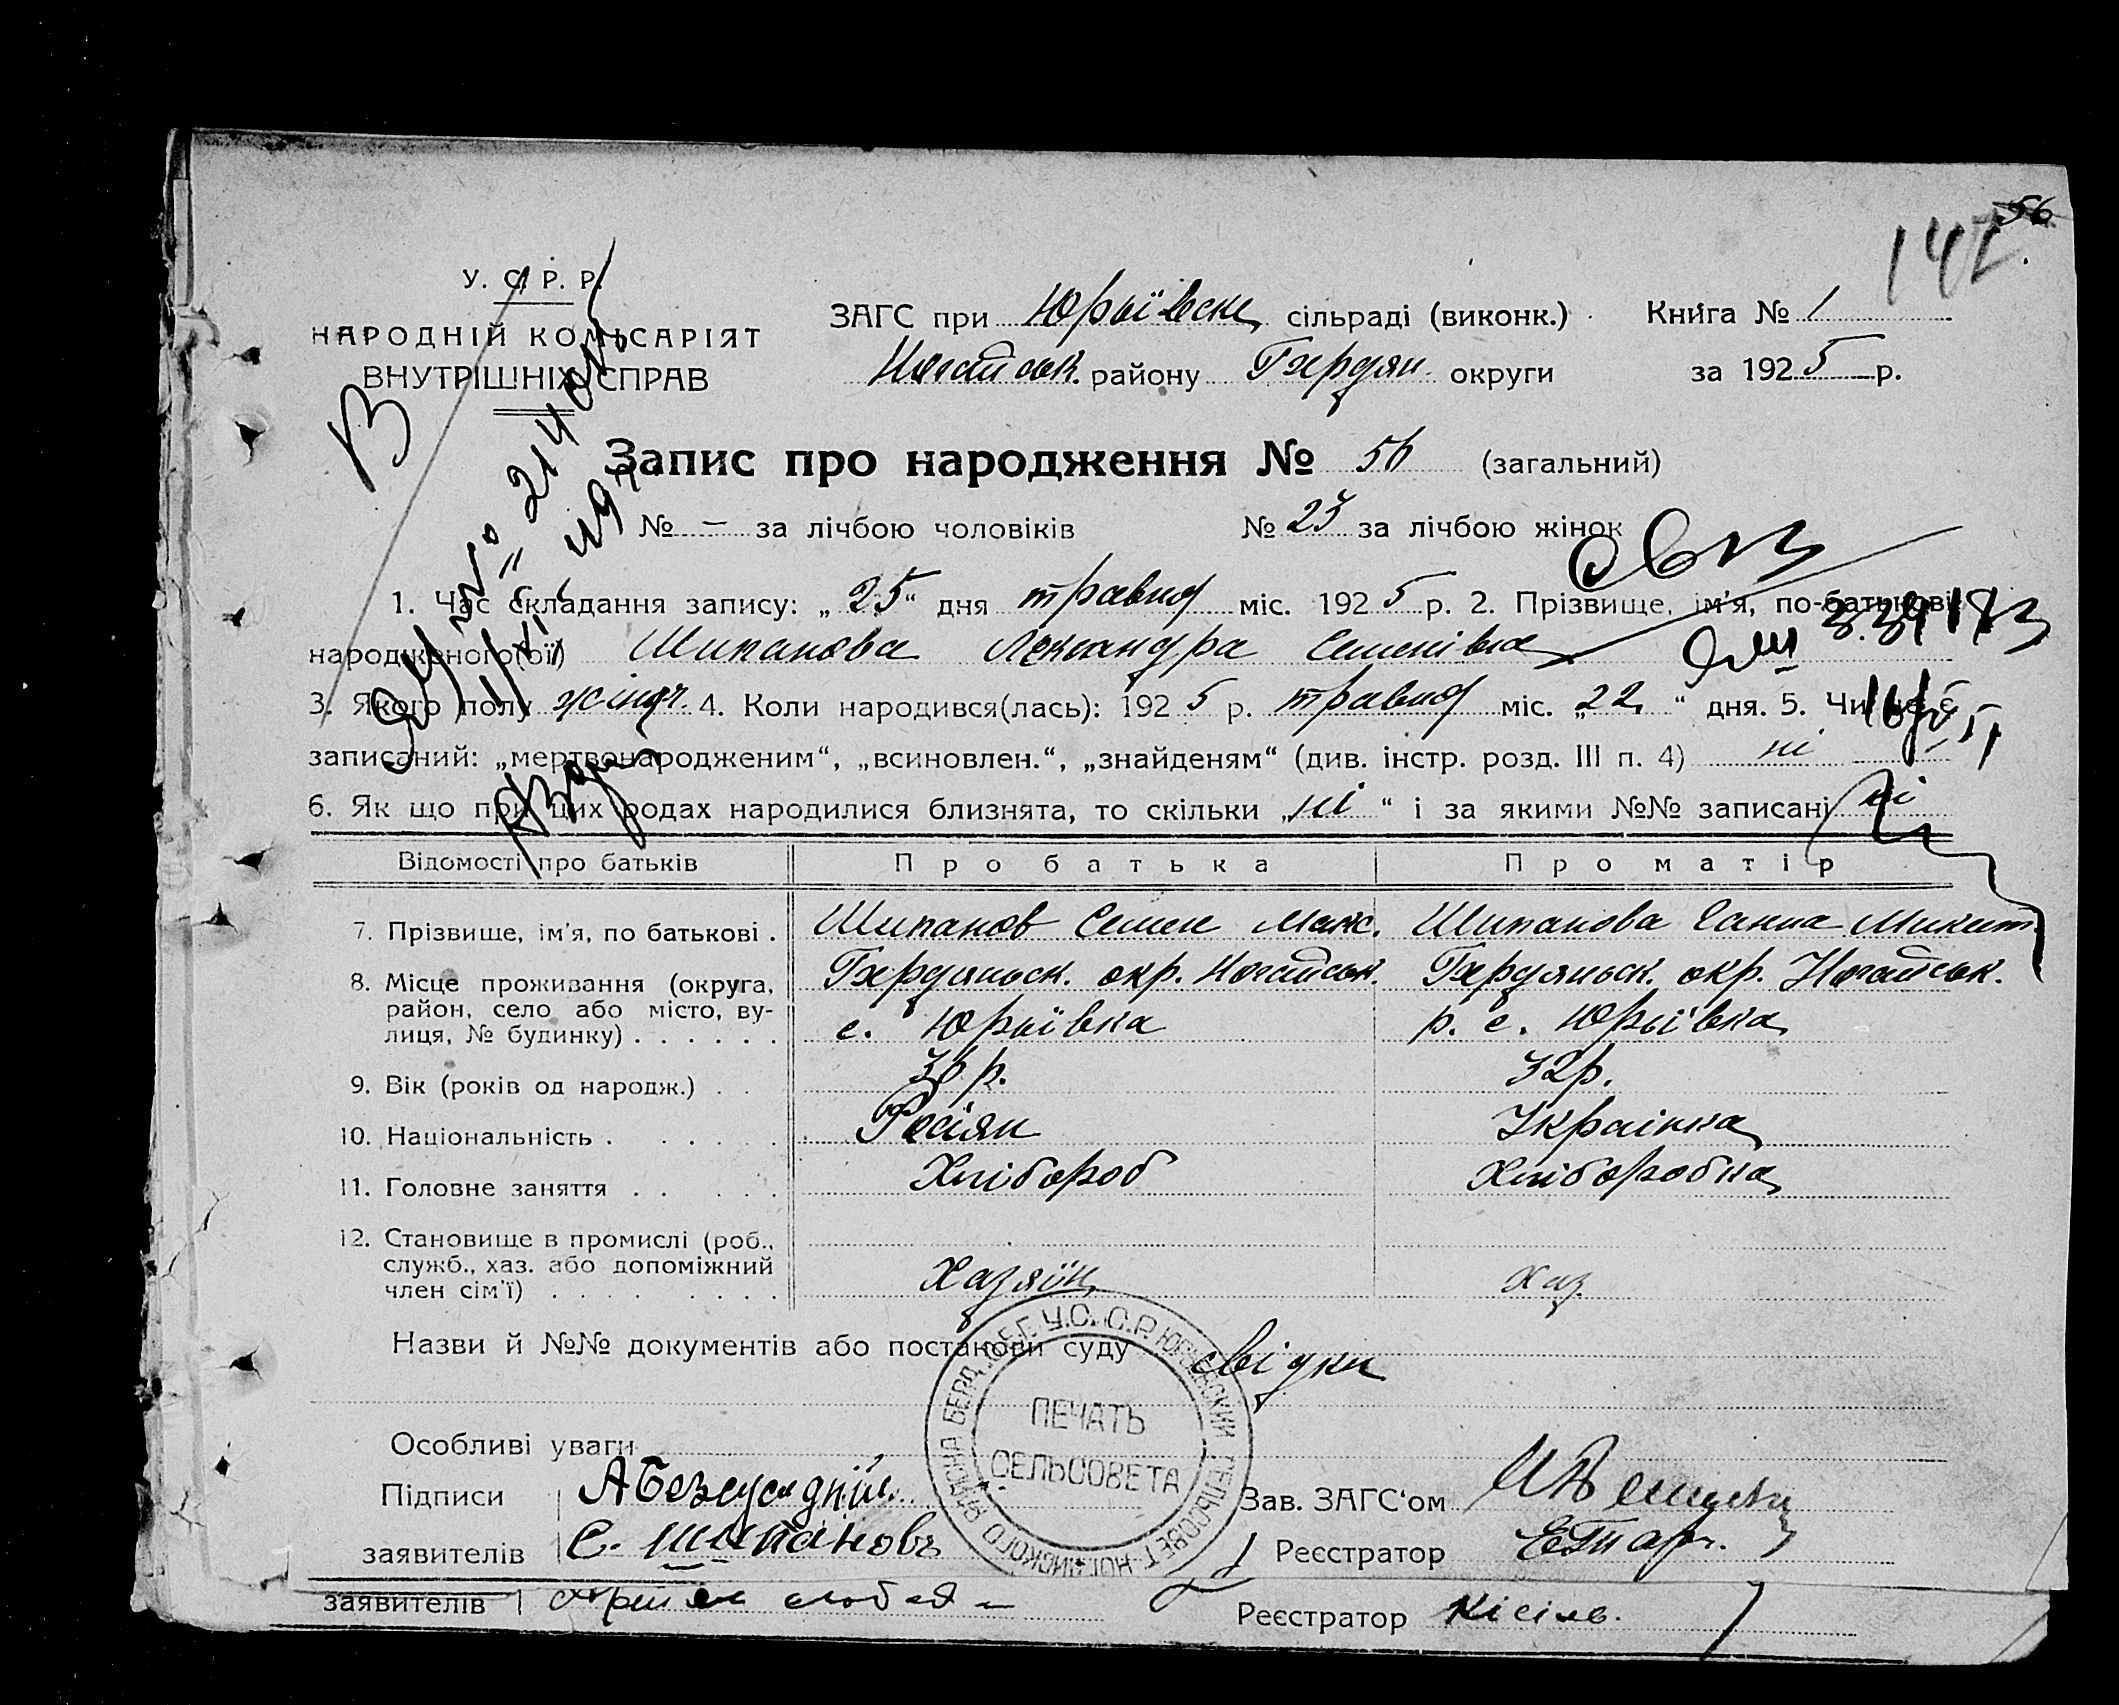 56
142
У. С. Р. Р.
НАРОДНІЙ КОМІСАРІЯТ
ВНУТРІШНІХ СПРАВ
ЗАГС при Юрьївськ сільраді (виконк.) Книга № 1
Ногайськ. району Бердян. округи за 1925 р.
В
Запис про народження № 56 (загальний)
№ – за лічбою чоловіків № 23 за лічбою жінок
1. Час складання запису: „25“ дня травня міс. 1925 р. 2. Прізвище, ім'я, по-батькові
народженого(ої) Шипанова Лександра Семенівна
3. Якого полу жіноч. 4. Коли народився(лась): 1925 р. травня міс. „22“ дня. 5. Чи не є
записаний: „мертвонародженим“, „всиновлен.“, „знайденям“ (див. інстр. розд. III п. 4) ні
6. Як що при цих родах народилися близнята, то скільки „ні“ і за якими №№ записані ні
Відомості про батьків Про батька Про матір
7. Прізвище, ім'я, по батькові . Шипанов Семен Макс. Шипанова Ганна Микит.
8. Місце проживання (округа, Бердяньск. окр. Ногайськ. Бердяньск. окр. Ногайськ.
район, село або місто, ву- с. Юрьївка р. с. Юрьївка
лиця, № будинку) . . . . . .
9. Вік (років од народж.) . . 36 р. 32 р.
10. Національність . . . . . . Росіян Українка
11. Головне заняття . . . . . Хлібороб Хліборобка
12. Становище в промислі (роб.,
служб., хаз. або допоміжний
член сім'ї) . . . . . . . . Хазяїн Хаз.
Назви й №№ документів або постанови суду свідки
У.С.С.Р. ЮРЬЕВСКИЙ СЕЛЬСОВЕТ НОГАЙСКОГО
ПЕЧАТЬ
СЕЛЬСОВЕТА
Особливі уваги
Підписи Зав. ЗАГС'ом
заявителів С. Шипановъ Реєстратор
заявителів Реєстратор Кісіль.